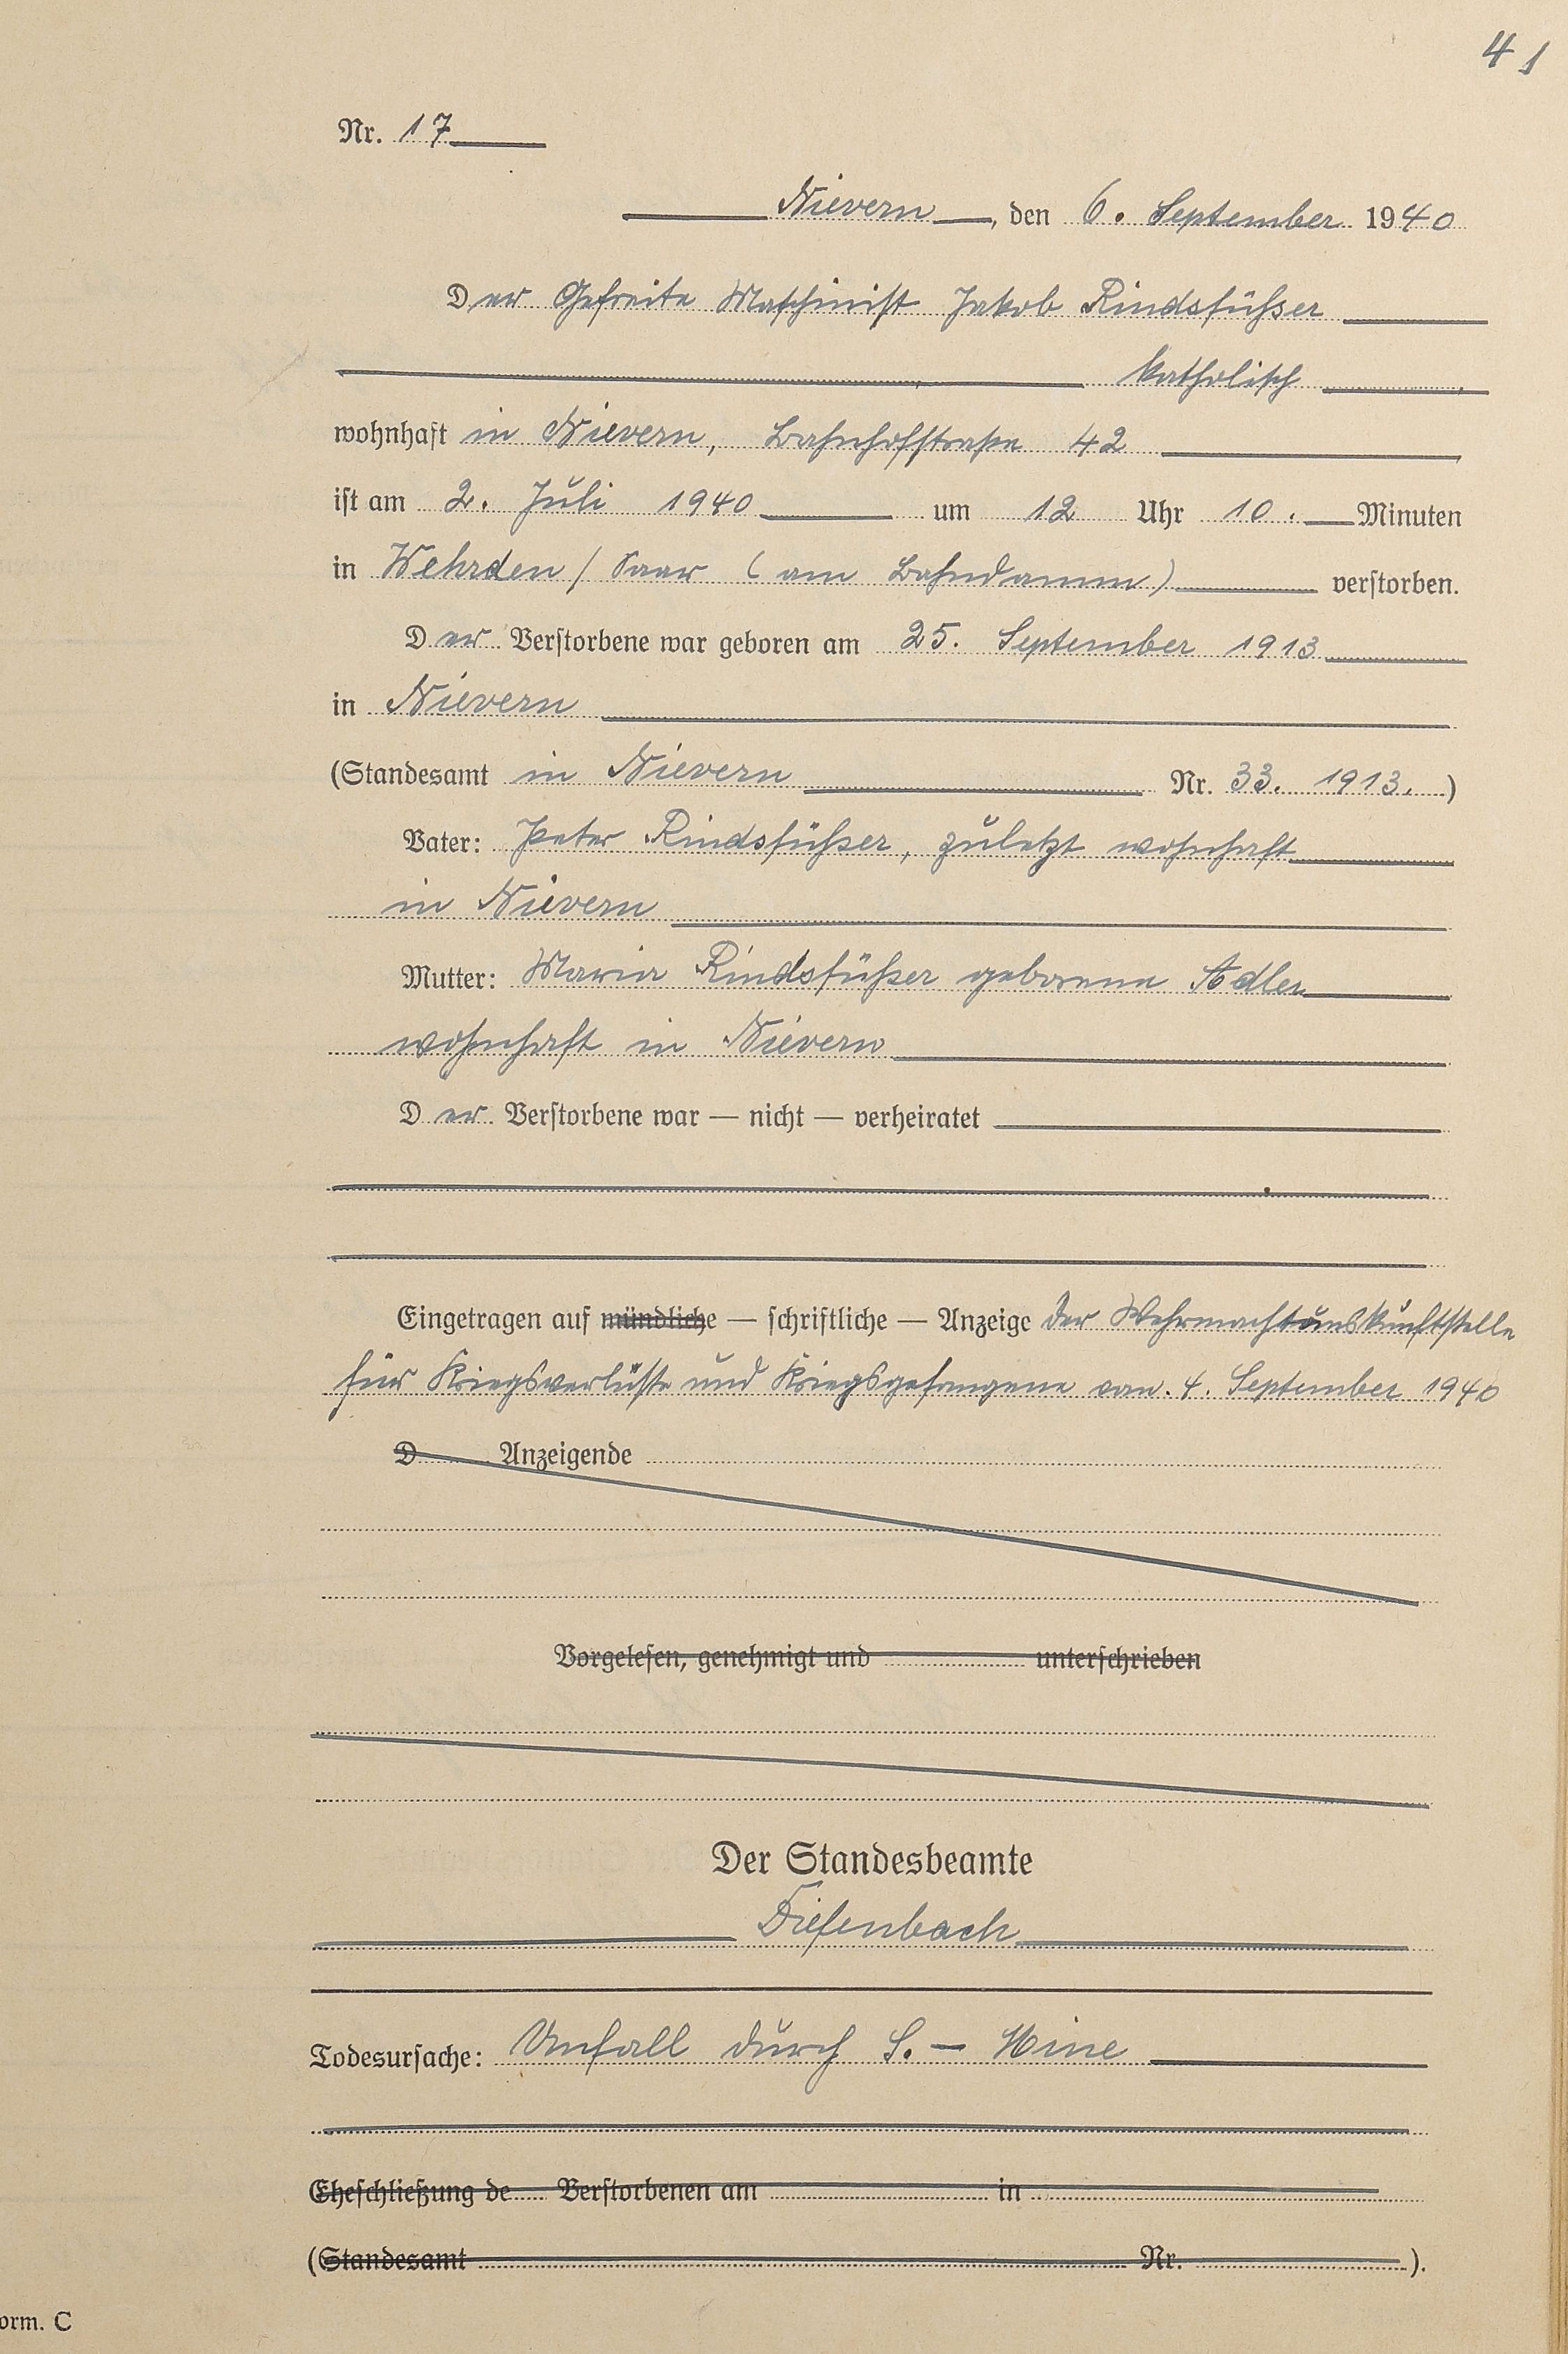 41
Nr. 17
Nievern, den 6. September 1940
Der Gefreite Maschinist Jakob Rindsfüßer
katholisch
wohnhaft in Nievern, Bahnhofstraße 42
ist am 2. Juli 1940 um 12 Uhr 10. Minuten
in Wehrden / Saar (am Bahndamm) verstorben.
Der Verstorbene war geboren am 25. September 1913
in Nievern
(Standesamt in Nievern Nr. 33. 1913.)
Vater: Peter Rindsfüßer, zuletzt wohnhaft
in Nievern
Mutter: Maria Rindsfüßer geborene Adler
wohnhaft in Nievern
Der Verstorbene war — nicht — verheiratet
Eingetragen auf mündliche — schriftliche — Anzeige der Wehrmachtauskunftstelle
für Kriegsverluste und Kriegsgefangene vom. 4. September 1940
D Anzeigende
Vorgelesen, genehmigt und unterschrieben
Der Standesbeamte
Diefenbach
Todesursache: Unfall durch S.- Mine
Eheschließung de Verstorbenen am in
(Standesamt Nr. ).
orm. C